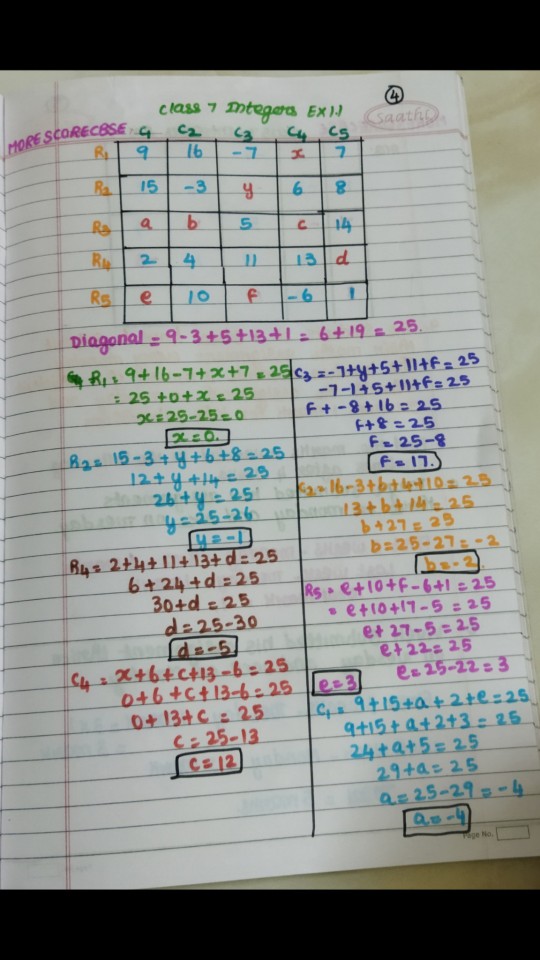 4
Class 7 Integers EX 1.1
saathi
MORESCORECBSE C1 C2 C3 C4 C5
R1 9 16 -7 x 7
R2 15 -3 y 6 8
R3 a b 5 c 14
R4 2 4 11 13 d
R5 e 10 f -6 1
Diagonal = 9-3+5+13+1 = 6+19 = 25.
R1 = 9+16-7+x+7 = 25
= 25+0+x = 25
x = 25-25 = 0
x = 0.
R2 = 15-3+y+6+8 = 25
12+y+14 = 25
26+y = 25
y = 25-26
y = -1
R4 = 2+4+11+13+d = 25
6+24+d = 25
30+d = 25
d = 25-30
d = -5
C4 = x+6+c+13-6 = 25
0+6+c+13-6 = 25
0+13+c = 25
c = 25-13
c = 12
C3 = -7+y+5+11+f = 25
-7-1+5+11+f = 25
f+-8+16 = 25
f+8 = 25
f = 25-8
f = 17.
C2 = 16-3+b+4+10 = 25
13+b+14 = 25
b+27 = 25
b = 25-27 = -2
b = -2
R5 = e+10+f-6+1 = 25
= e+10+17-5 = 25
e+27-5 = 25
e+22 = 25
e = 25-22 = 3
e = 3
C1 = 9+15+a+2+e = 25
9+15+a+2+3 = 25
24+a+5 = 25
29+a = 25
a = 25-29 = -4
a = -4
Page No.